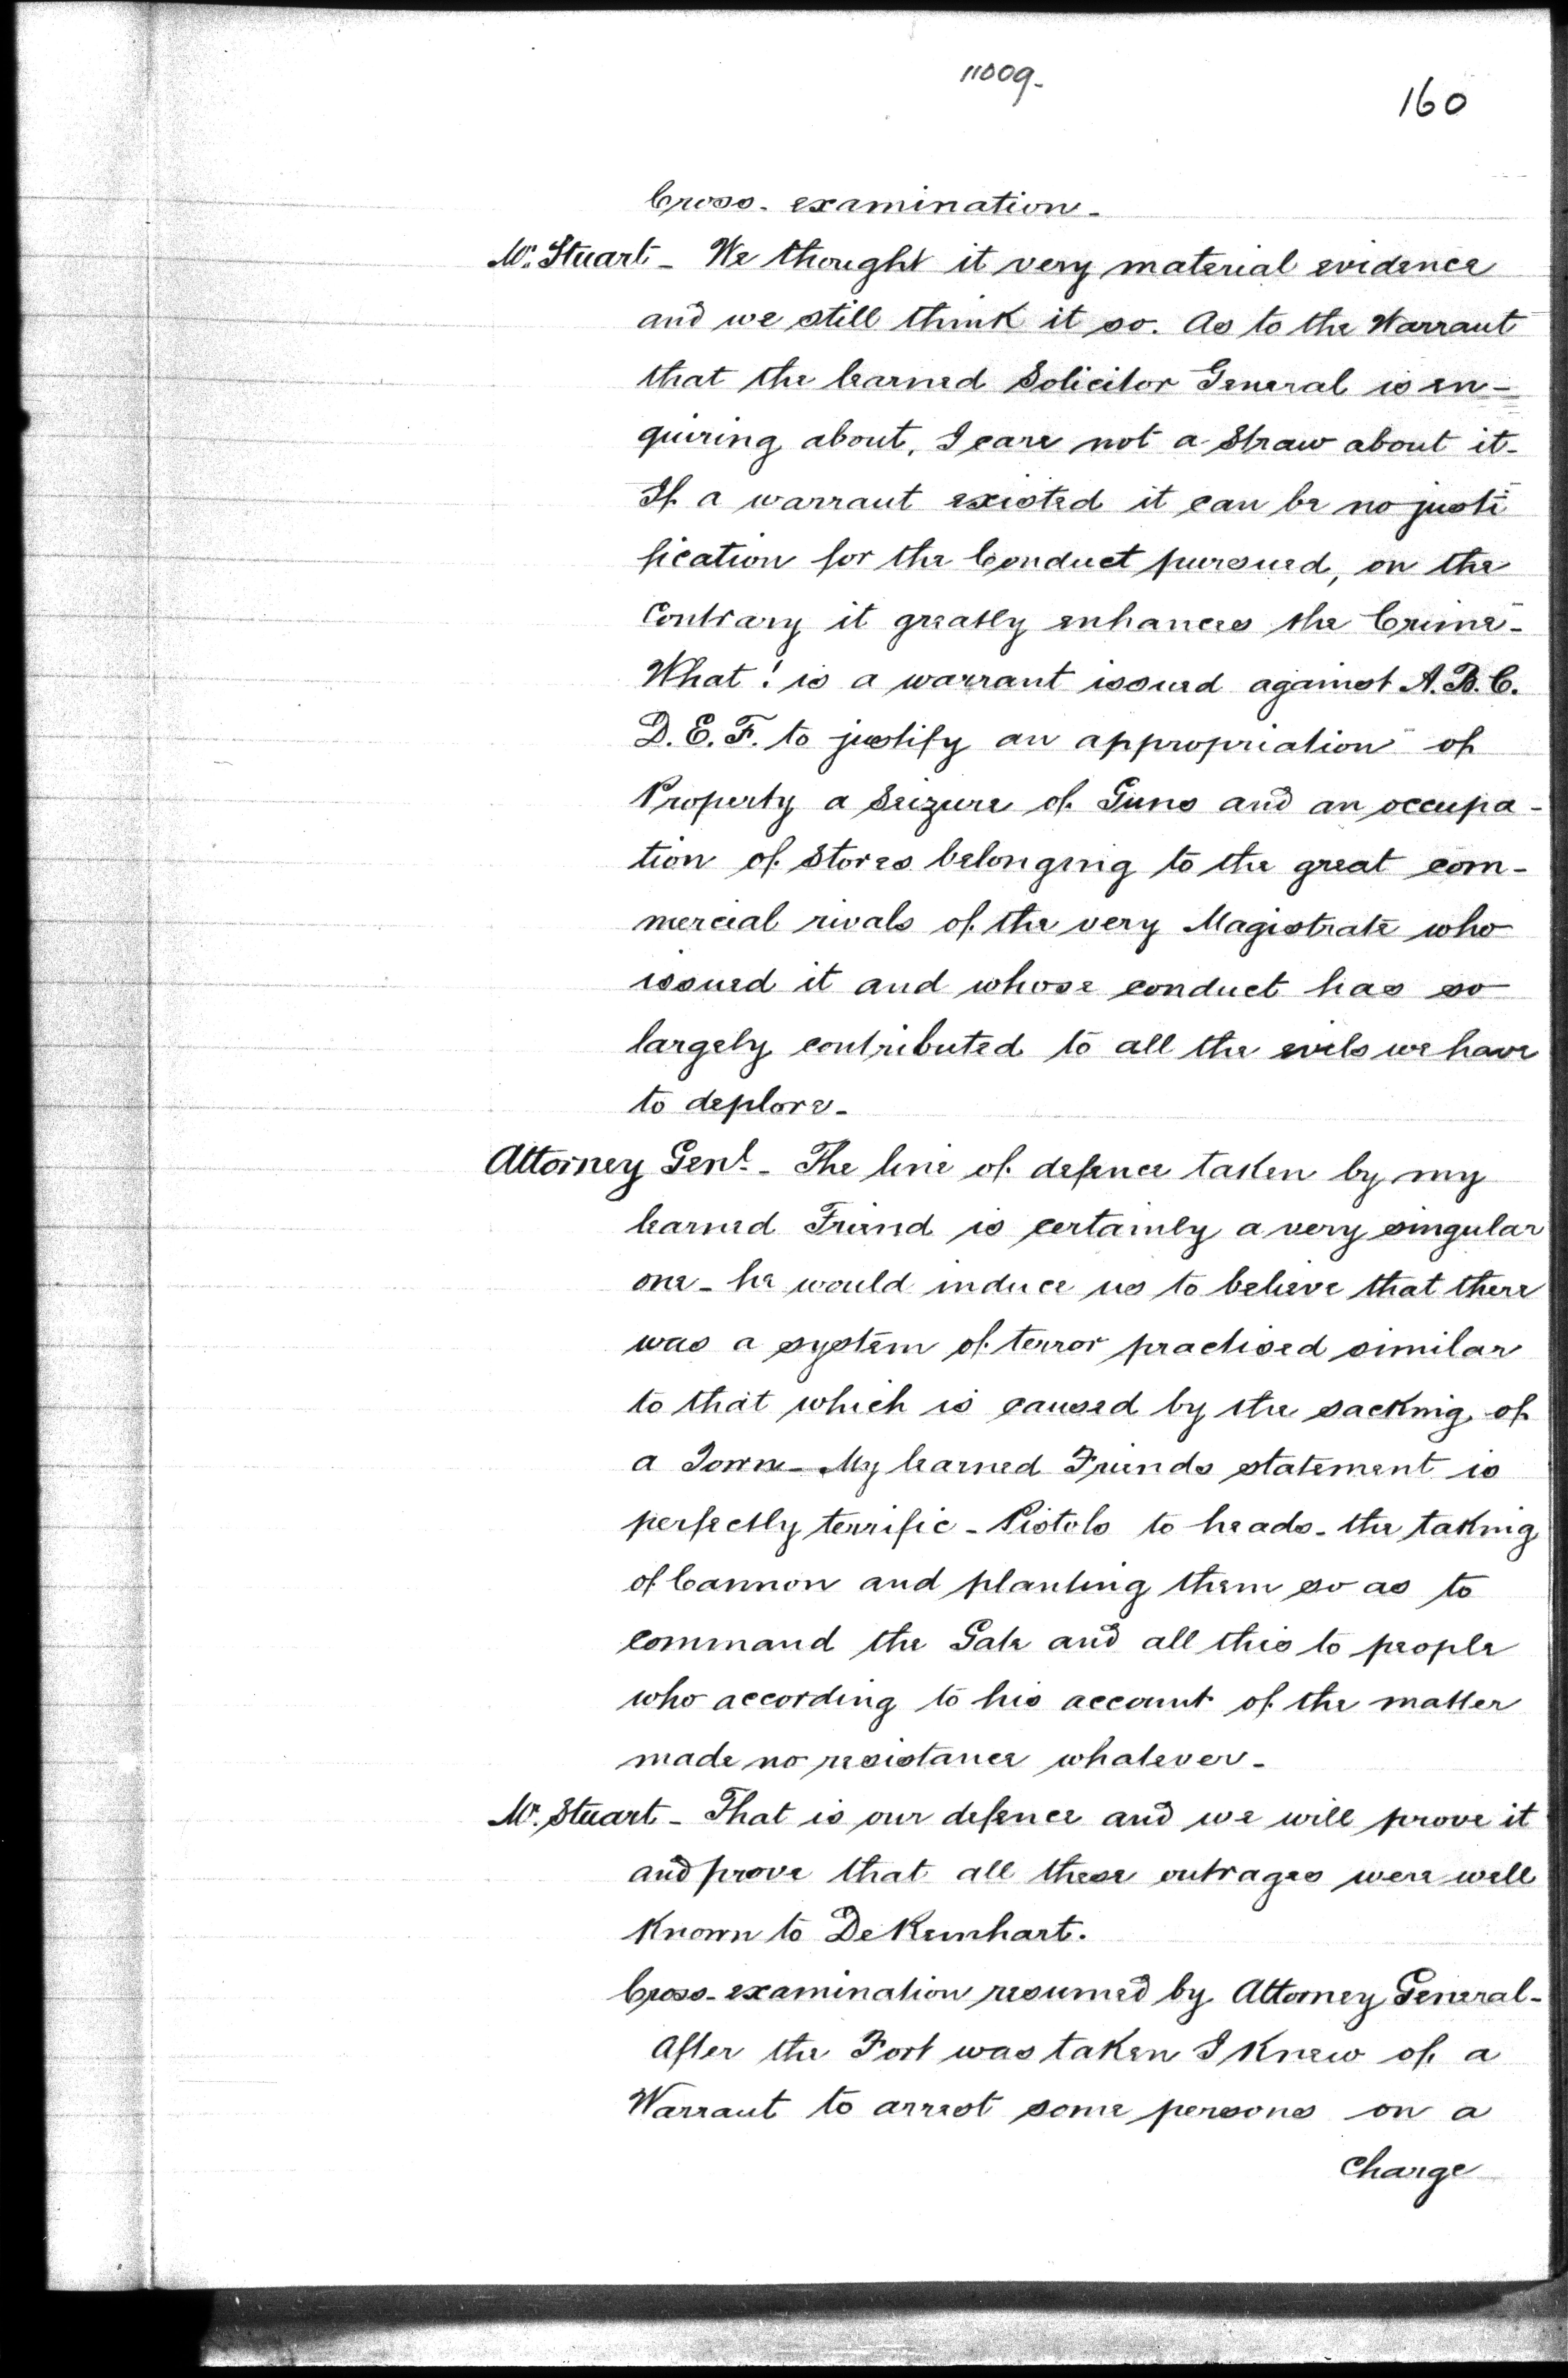 11009-
160
Cross-examination-
Mr. Stuart- We thought it very material evidence
and we still think it so. As to the Warrant
that the learned Solicitor General is en-
quiring about, I care not a Straw about it-
If a warrant existed it can be no justi
fication for the Conduct pursued, on the
Contrary it greatly enhances the Crime-
What! is a warrant issued against A.B.C.
D.E.F. to justify an appropriation of
Property a Seizure of Guns and an occupa-
tion of Stores belonging to the great com-
mercial rivals of the very Magistrate who
issued it and whose conduct has so
largely contributed to all the evils we have
to deplore-
Attorney Genl- The line of defence taken by my
learned Friend is certainly a very singular
one- he would induce us to believe that there
was a system of terror practised similar
to that which is caused by the sacking of
a Town- My learned Friends statement is
perfectly terrific- Pistols to heads- the taking
of Cannon and planting them so as to
command the Gate and all this to people
who according to his account of the matter
made no resistance whatever-
Mr. Stuart- That is our defence and we will prove it
and prove that all these outrages were well
Known to De Reinhart.
Cross-examination resumed by Attorney General-
After the Fort was taken I Knew of a
Warrant to arrest some persons on a
Charge